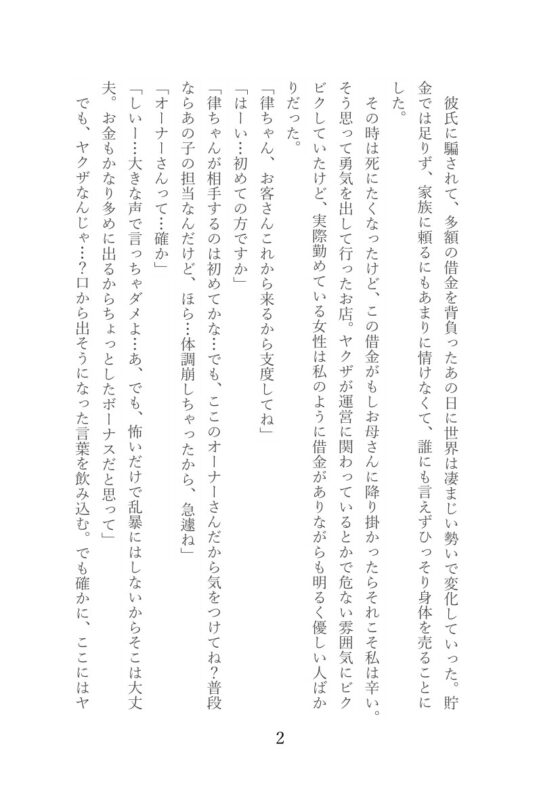 彼氏に騙されて、多額の借金を背負ったあの日に世界は凄まじい勢いで変化していった。貯
金では足りず、家族に頼るにもあまりに情けなくて、誰にも言えずひっそり身体を売ることに
した。
　その時は死にたくなったけど、この借金がもしお母さんに降り掛かったらそれこそ私は辛い。
そう思って勇気を出して行ったお店。ヤクザが運営に関わっているとかで危ない雰囲気にビク
ビクしていたけど、実際勤めている女性は私のように借金がありながらも明るく優しい人ばか
りだった。
「律ちゃん、お客さんこれから来るから支度してね」
「はーい…初めての方ですか」
「律ちゃんが相手するのは初めてかな…でも、ここのオーナーさんだから気をつけてね？普段
ならあの子の担当なんだけど、ほら…体調崩しちゃったから、急遽ね」
「オーナーさんって…確か」
「しいー…大きな声で言っちゃダメよ…あ、でも、怖いだけで乱暴にはしないからそこは大丈
夫。お金もかなり多めに出るからちょっとしたボーナスだと思って」
　でも、ヤクザなんじゃ…？口から出そうになった言葉を飲み込む。でも確かに、ここにはヤ
2